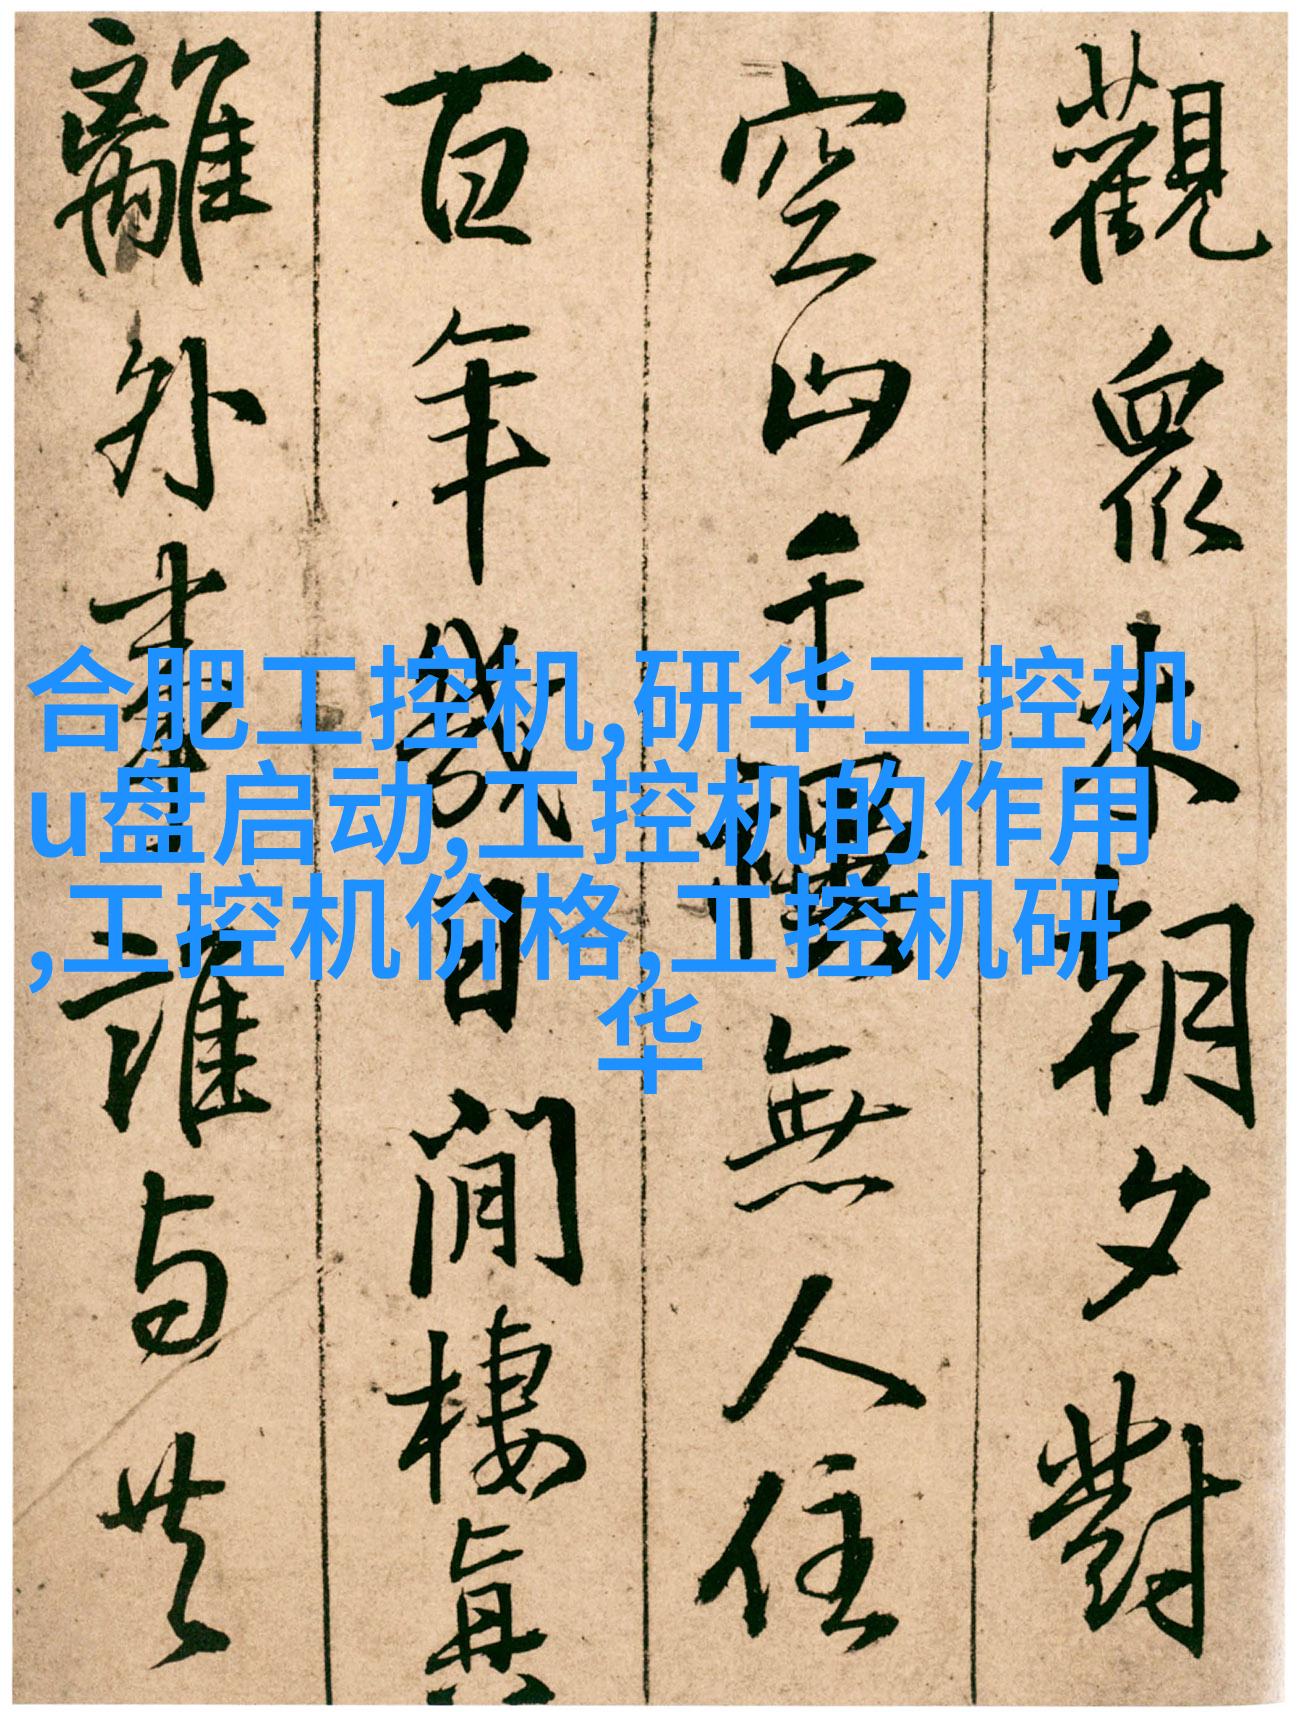 觀眾來朝夕對
空山千無人住
百年幾日閒棲真
離外誰与共
合肥工控机,研华工控机
u盘启动,工控机的作用
,工控机价格,工控机研
华